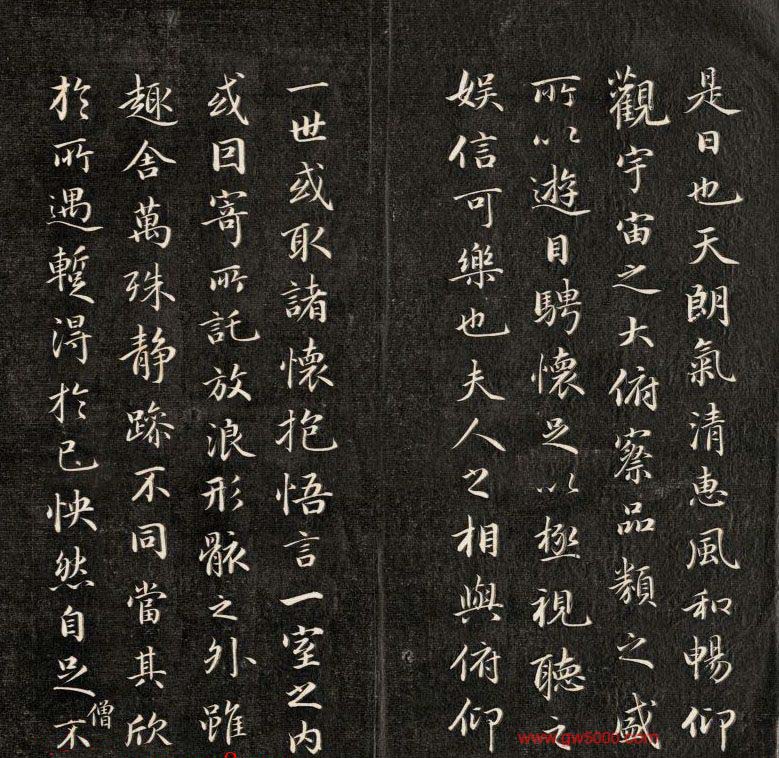 是日也天朗氣清惠風和暢仰
觀宇宙之大俯察品類之盛
所以遊目騁懷足以極視聽之
娛信可樂也夫人之相與俯仰
一世或取諸懷抱悟言一室之内
或因寄所託放浪形骸之外雖
趣舍萬殊静躁不同當其欣
於所遇暫得於己怏然自足不
僧
www.gw5000.com